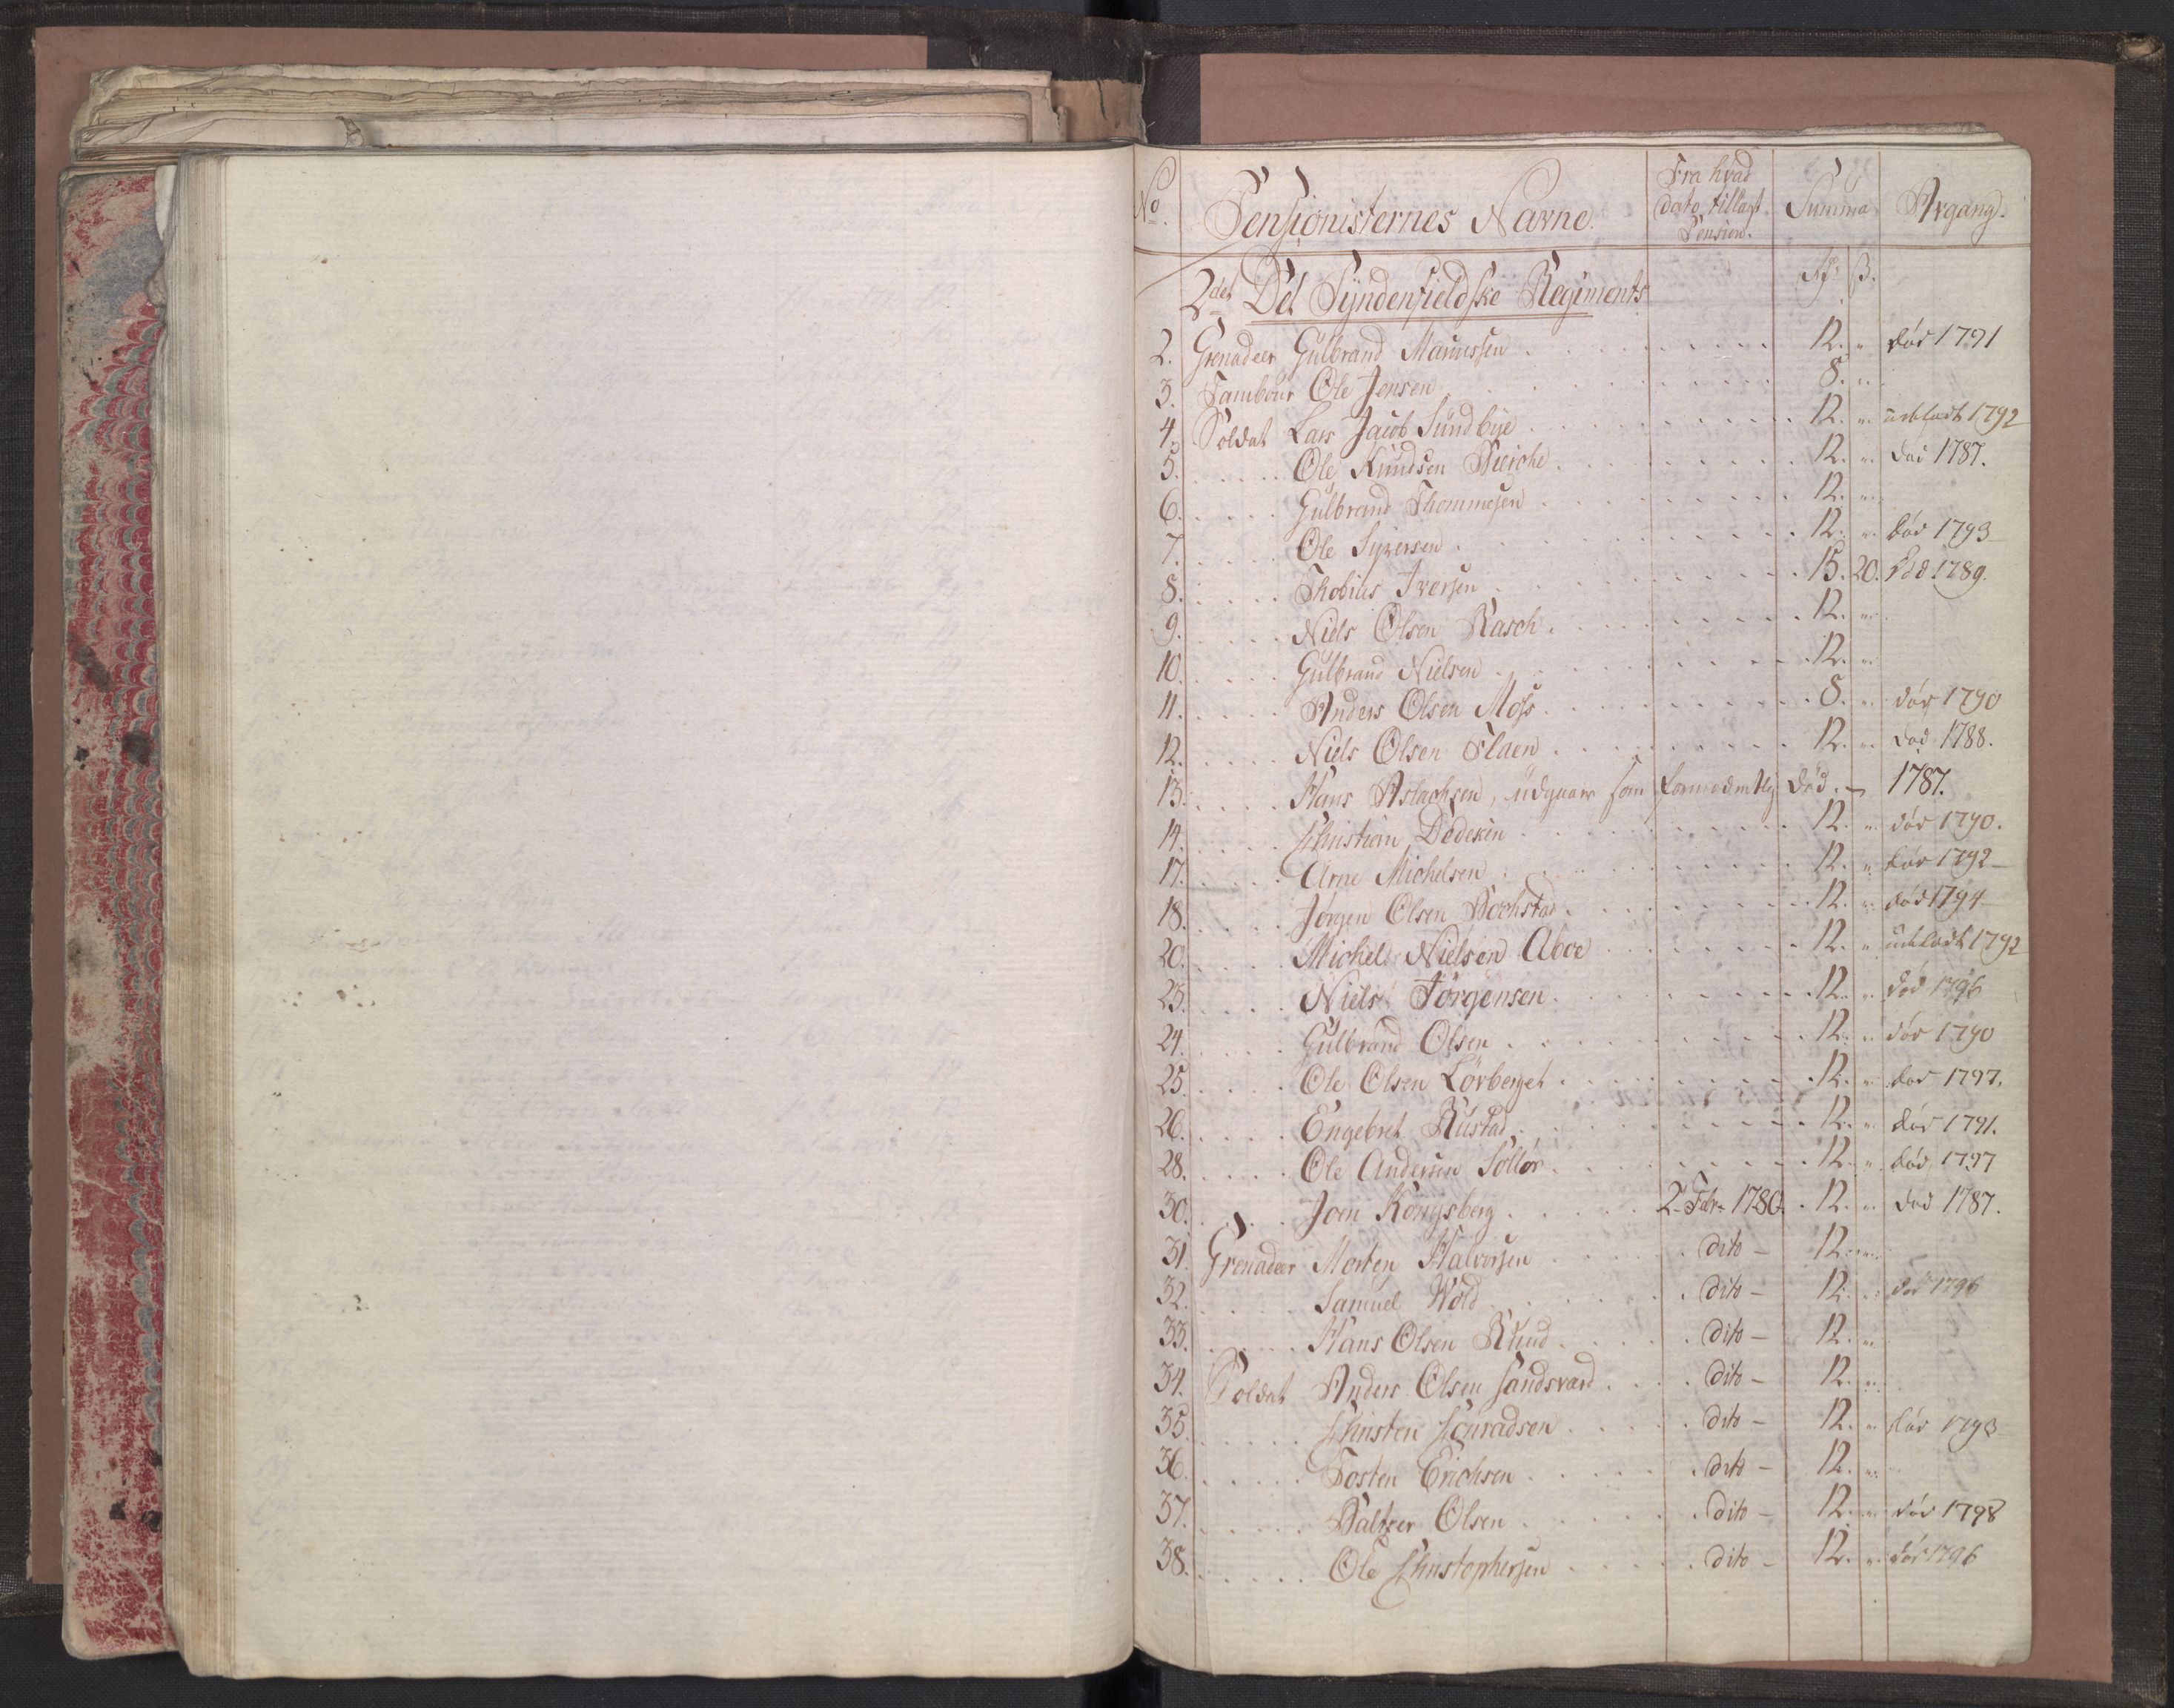 No. Pensionisternes Navne. Fra hvad dato tillagt Pension. Summa Afgang.
2det Det Syndenfieldske Regiments Rd. ß.
2. Grenadeer Gulbrand Mariussen 12. " død 1791
3. Tambour Ole Jensen 8. "
4. Soldat Lars Jacob Sundbye 12. " udeladt 1792
5. Ole Knudsen Bierche 12. " død 1787.
6. Gulbrand Thommesen 12. "
7. Ole Syversen 12. " død 1793
8. Thobias Iversen 15. 20. død 1789.
9. Niels Olsen Rasch 12. "
10. Gulbrand Nielsen 12. "
11. Anders Olsen Moss 8. " død 1790
12. Niels Olsen Flaen 12. " død 1788.
13. Hans Aslachsen, udgaaer som formodentlig død. — 1787.
14. Christian Dedekin 12. " død 1790.
17. Arne Michelsen 12. " død 1792
18. Jørgen Olsen Bochstad 12. " død 1794
20. Michel Nielsen Aboe 12. " udeladt 1792
23. Niels Jørgensen 12. " død 1796
24. Gulbrand Olsen 12. " død 1790
25. Ole Olsen Lørberget 12. " død 1797.
26. Engebret Rustad 12. " død 1791.
28. Ole Andersen Sollør 12. " død 1797
30. Joen Kongsberg 2. Febr. 1780. 12. " død 1787.
31. Grenadeer Morten Halvorsen dito — 12. "
32. Samuel Wold dito — 12. " død 1796
33. Hans Olsen Ruud dito — 12. "
34. Soldat Anders Olsen Sandsværd dito — 12. "
35. Christen Conradsen dito — 12. " død 1793
36. Tosten Erichsen dito — 12. "
37. Baltzer Olsen dito — 12. " død 1798
38. Ole Christophersen dito — 12. " død 1796